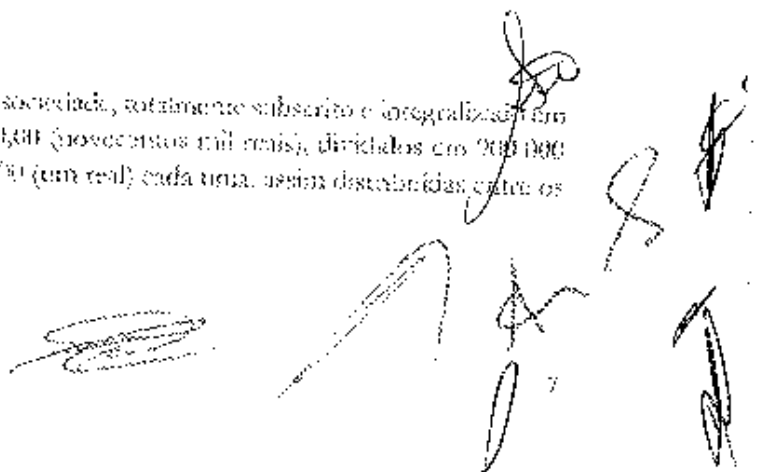 sociedade, totalmente subscrito e integralizado em
(novecentos mil reais), divididos em 900.000
(um real) cada uma, assim distribuídas entre os
7